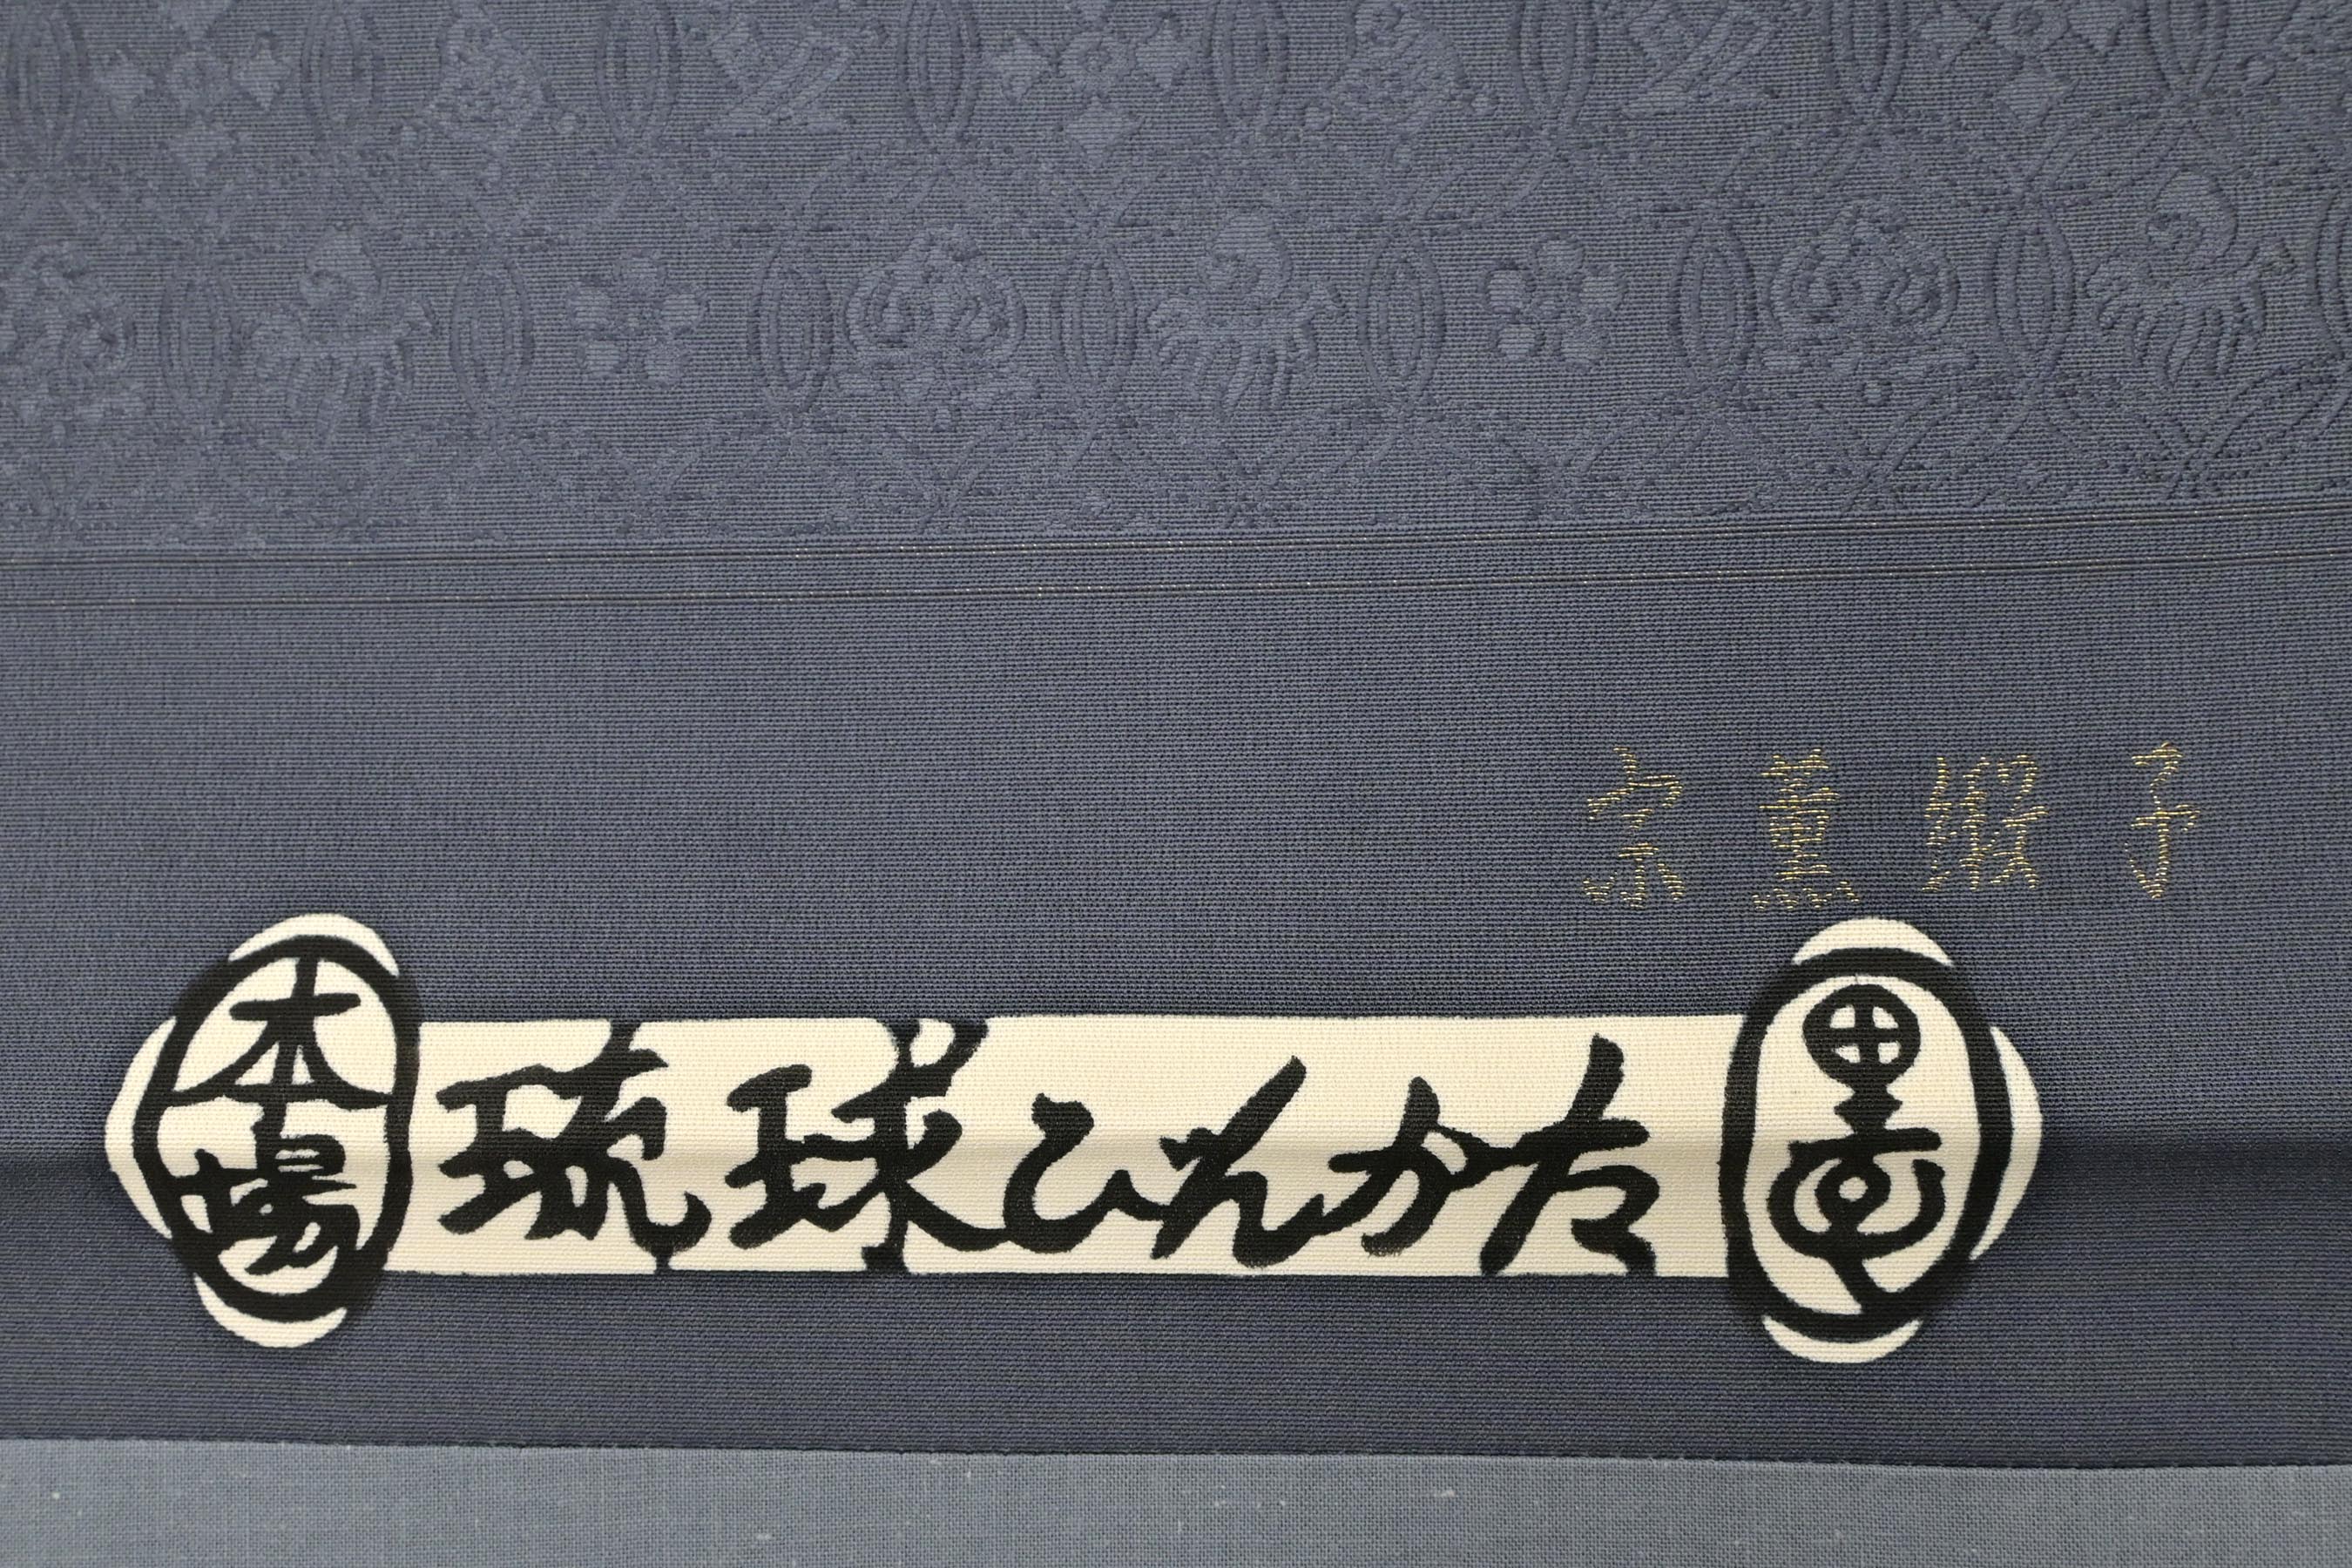 宗薫緞子
本場
琉球びんがた